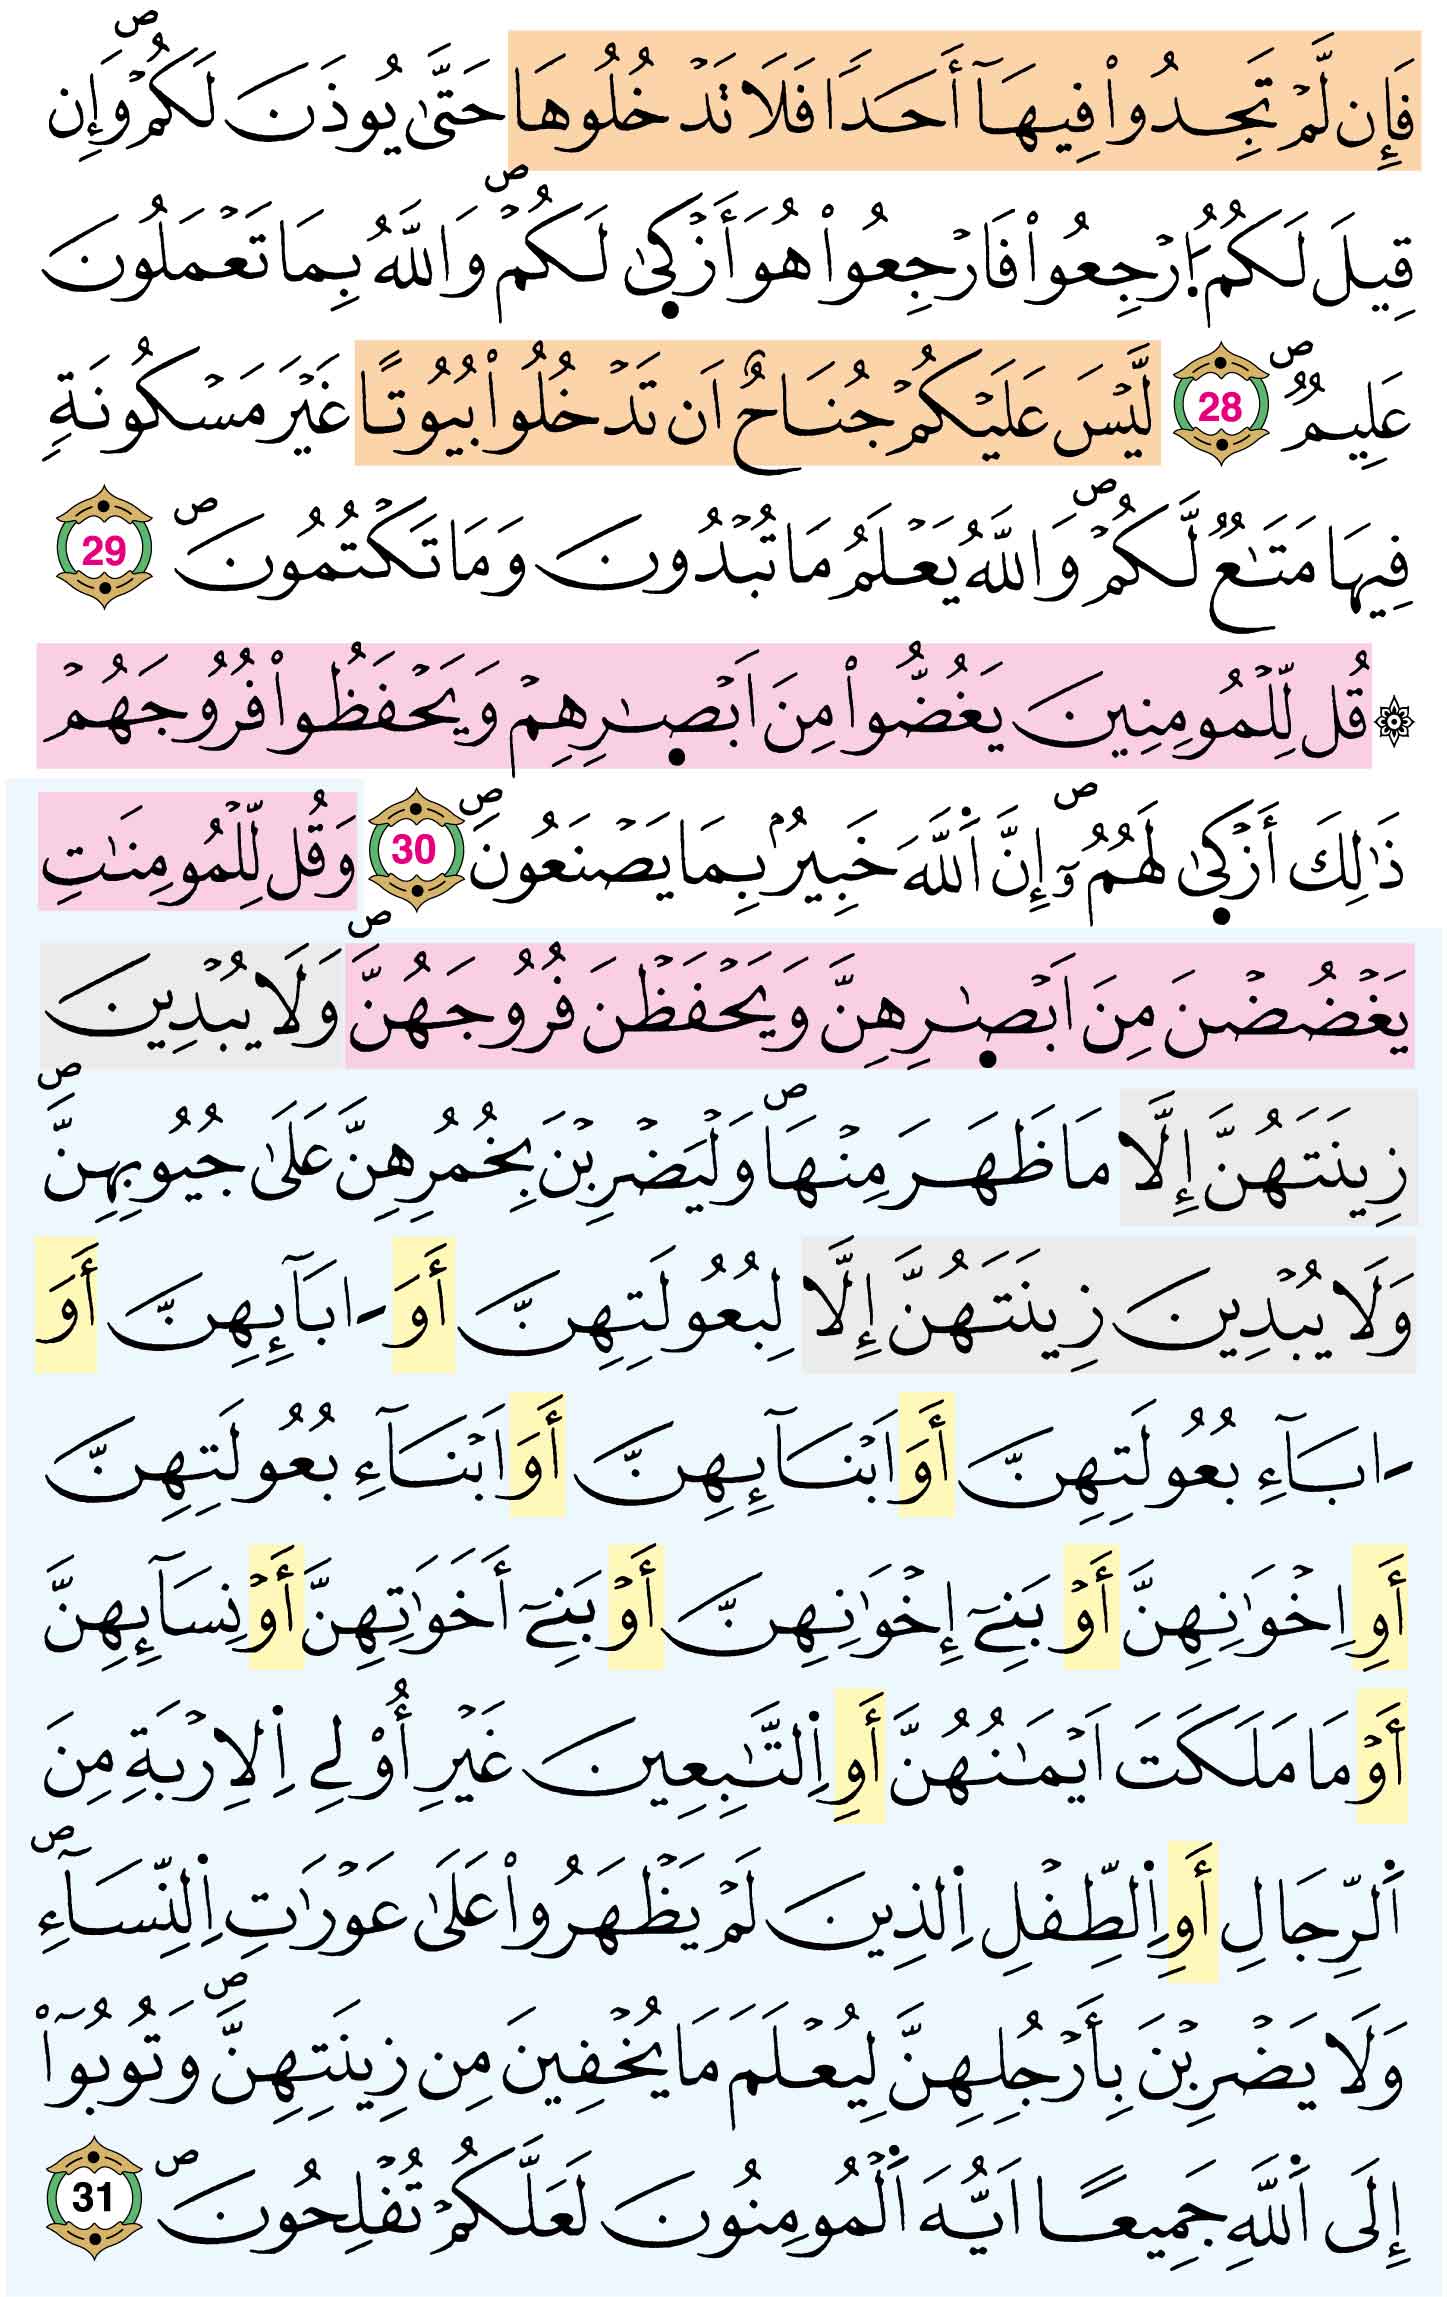 فَإِن لَّمْ تَجِدُواْ فِيهَآ أَحَدًا فَلَا تَدْخُلُوهَا حَتَّىٰ يُوذَنَ لَكُمْۖ وَإِن
قِيلَ لَكُمُ اُ۪رْجِعُواْ فَارْجِعُواْ هُوَ أَزْكَىٰ لَكُمْۖ وَاللَّهُ بِمَا تَعْمَلُونَ
عَلِيمٌۖ 28 لَّيْسَ عَلَيْكُمْ جُنَاحٌ اَن تَدْخُلُواْ بُيُوتًا غَيْرَ مَسْكُونَةٍ
فِيهَا مَتَٰعٌ لَّكُمْۖ وَاللَّهُ يَعْلَمُ مَا تُبْدُونَ وَمَا تَكْتُمُونَۖ 29
۞ قُل لِّلْمُومِنِينَ يَغُضُّواْ مِنَ اَبْصٰ۪رِهِمْ وَيَحْفَظُواْ فُرُوجَهُمْ
ذَٰلِكَ أَزْكَىٰ لَهُمُۥٓۖ إِنَّ اَ۬للَّهَ خَبِيرُۢ بِمَا يَصْنَعُونَۖ 30 وَقُل لِّلْمُومِنَٰتِ
يَغْضُضْنَ مِنَ اَبْصٰ۪رِهِنَّ وَيَحْفَظْنَ فُرُوجَهُنَّۖ وَلَا يُبْدِينَ
زِينَتَهُنَّ إِلَّا مَا ظَهَرَ مِنْهَاۖ وَلْيَضْرِبْنَ بِخُمُرِهِنَّ عَلَىٰ جُيُوبِهِنَّۖ
وَلَا يُبْدِينَ زِينَتَهُنَّ إِلَّا لِبُعُولَتِهِنَّ أَوَ -ابَآئِهِنَّ أَوَ
-ابَآءِ بُعُولَتِهِنَّ أَوَ اَبْنَآئِهِنَّ أَوَ اَبْنَآءِ بُعُولَتِهِنَّ
أَوِ اِخْوَٰنِهِنَّ أَوْ بَنِےٓ إِخْوَٰنِهِنَّ أَوْ بَنِےٓ أَخَوَٰتِهِنَّ أَوْ نِسَآئِهِنَّ
أَوْ مَا مَلَكَتَ اَيْمَٰنُهُنَّ أَوِ اِ۬لتَّٰبِعِينَ غَيْرِ أُوْلِے اِ۬لِارْبَةِ مِنَ
اَ۬لرِّجَالِ أَوِ اِ۬لطِّفْلِ اِ۬لذِينَ لَمْ يَظْهَرُواْ عَلَىٰ عَوْرَٰتِ اِ۬لنِّسَآءِۖ
وَلَا يَضْرِبْنَ بِأَرْجُلِهِنَّ لِيُعْلَمَ مَا يُخْفِينَ مِن زِينَتِهِنَّۖ وَتُوبُوٓاْ
إِلَى اَ۬للَّهِ جَمِيعًا اَيُّهَ اَ۬لْمُومِنُونَ لَعَلَّكُمْ تُفْلِحُونَۖ 31